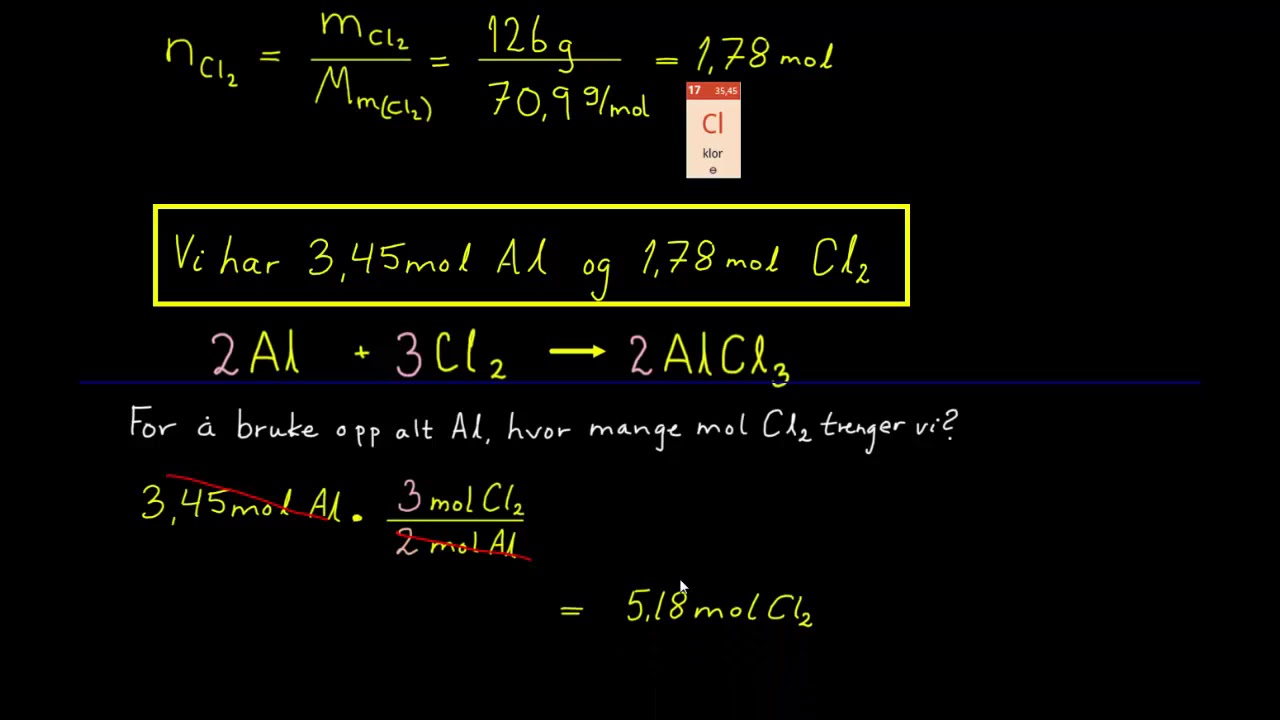 n Cl₂ = m Cl₂ / Mm(Cl₂) = 126 g / 70,9 g/mol = 1,78 mol
17 35,45
Cl
klor
Vi har 3,45 mol Al og 1,78 mol Cl₂
2Al + 3Cl₂ → 2AlCl₃
For å bruke opp alt Al, hvor mange mol Cl₂ trenger vi?
3,45 mol Al · 3 mol Cl₂ / 2 mol Al
= 5,18 mol Cl₂